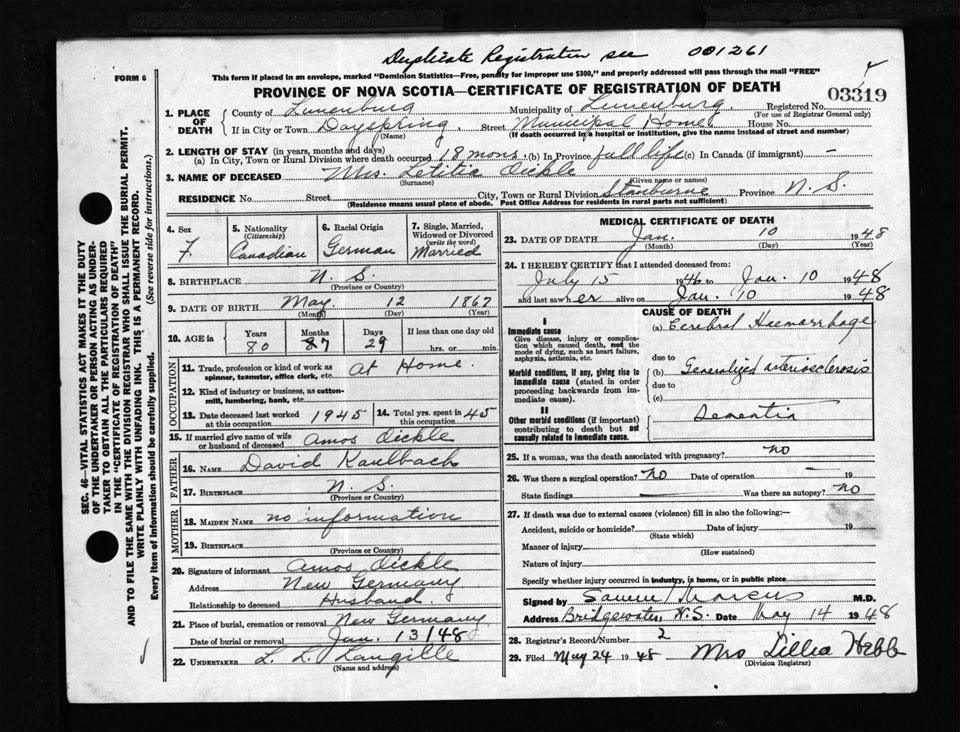 Duplicate Registration see 001261
FORM 6
This form if placed in an envelope, marked "Dominion Statistics—Free, penalty for improper use $300," and properly addressed will pass through the mail "FREE"
PROVINCE OF NOVA SCOTIA—CERTIFICATE OF REGISTRATION OF DEATH
03319
1. PLACE OF DEATH
County of Lunenburg Municipality of Lunenburg Registered No.
(For use of Registrar General only)
If in City or Town Dayspring Street Municipal Home House No.
(Name) (If death occurred in a hospital or institution, give the name instead of street and number)
2. LENGTH OF STAY (in years, months and days)
(a) In City, Town or Rural Division where death occurred 18 mons. (b) In Province full life (c) In Canada (if immigrant) —
3. NAME OF DECEASED Mrs. Letitia Oickle
(Surname) (Given name or names)
RESIDENCE No. Street City, Town or Rural Division Stanburne Province N. S.
(Residence means usual place of abode. Post Office Address for residents in rural parts not sufficient)
4. Sex F.
5. Nationality (Citizenship) Canadian
6. Racial Origin German
7. Single, Married, Widowed or Divorced (write the word) Married
8. BIRTHPLACE N. S.
(Province or Country)
9. DATE OF BIRTH May 12 1867
(Month) (Day) (Year)
10. AGE in Years 80 Months 87 Days 29 If less than one day old hrs. or min.
OCCUPATION
11. Trade, profession or kind of work as spinner, teamster, office clerk, etc. At Home.
12. Kind of industry or business, as cotton-mill, lumbering, bank, etc.
13. Date deceased last worked at this occupation 1945 14. Total yrs. spent in this occupation 45
15. If married give name of wife or husband of deceased Amos Oickle
FATHER
16. NAME David Kaulback
17. BIRTHPLACE N. S.
(Province or Country)
MOTHER
18. MAIDEN NAME no information
19. BIRTHPLACE
(Province or Country)
20. Signature of informant Amos Oickle
Address New Germany
Relationship to deceased Husband.
21. Place of burial, cremation or removal New Germany
Date of burial or removal Jan. 13/48
22. UNDERTAKER L. L. Langille
(Name and address)
MEDICAL CERTIFICATE OF DEATH
23. DATE OF DEATH Jan. 10 1948
(Month) (Day) (Year)
24. I HEREBY CERTIFY that I attended deceased from:
July 15 1946 to Jan. 10 1948
and last saw her alive on Jan. 10 1948
CAUSE OF DEATH
I
Immediate cause
Give disease, injury or complication which caused death, not the mode of dying, such as heart failure, asphyxia, asthenia, etc.
(a) Cerebral Haemorrhage
due to
Morbid conditions, if any, giving rise to immediate cause (stated in order proceeding backwards from immediate cause).
(b) Generalized arteriosclerosis
due to
(c)
II
Other morbid conditions (if important) contributing to death but not causally related to immediate cause.
Dementia
25. If a woman, was the death associated with pregnancy? no
26. Was there a surgical operation? no Date of operation — 19
State findings Was there an autopsy? no
27. If death was due to external causes (violence) fill in also the following:—
Accident, suicide or homicide? Date of injury 19
(State which)
Manner of injury
(How sustained)
Nature of injury
Specify whether injury occurred in industry, in home, or in public place
Signed by Marcus M.D.
Address Bridgewater, N.S. Date May 14 1948
28. Registrar's Record Number 2
29. Filed May 24 1948 Mrs Lillia Hebb
(Division Registrar)
SEC. 46—VITAL STATISTICS ACT MAKES IT THE DUTY
OF THE UNDERTAKER OR PERSON ACTING AS UNDERTAKER TO OBTAIN ALL THE PARTICULARS REQUIRED
IN THE "CERTIFICATE OF REGISTRATION OF DEATH"
AND TO FILE THE SAME WITH THE DIVISION REGISTRAR WHO SHALL ISSUE THE BURIAL PERMIT.
WRITE PLAINLY WITH UNFADING INK. THIS IS A PERMANENT RECORD.
Every item of information should be carefully supplied. (See reverse side for instructions.)